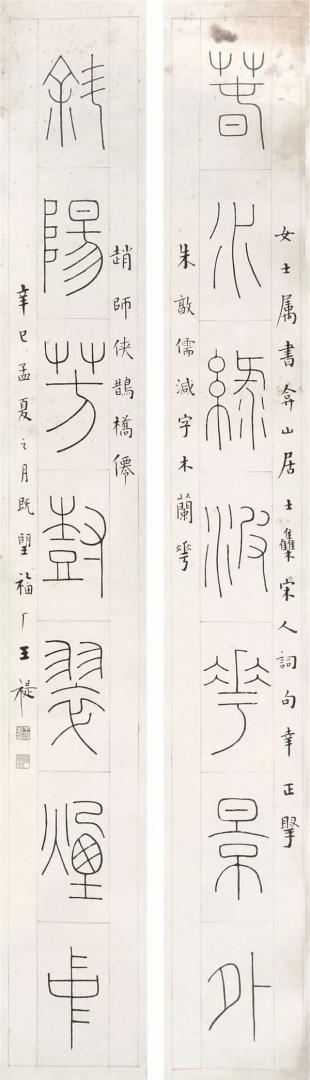 女士属書弇山居士雧宋人詞句幸正掔
萅水綠波華景外
朱敦儒減字木蘭華
趙師侠鵲橋僊
斜陽芳尌翠煙中
辛巳孟夏之月既望福厂王禔